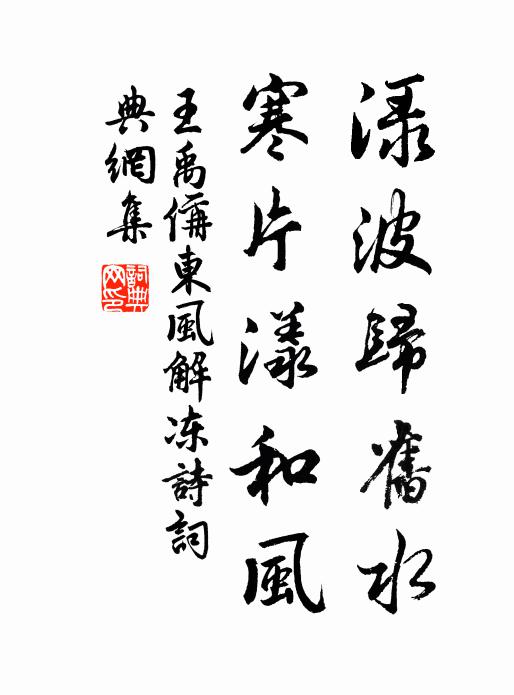 渌波歸舊水
寒片漾和風
王禹偁東風解冻詩詞
典網集
詞典
网印